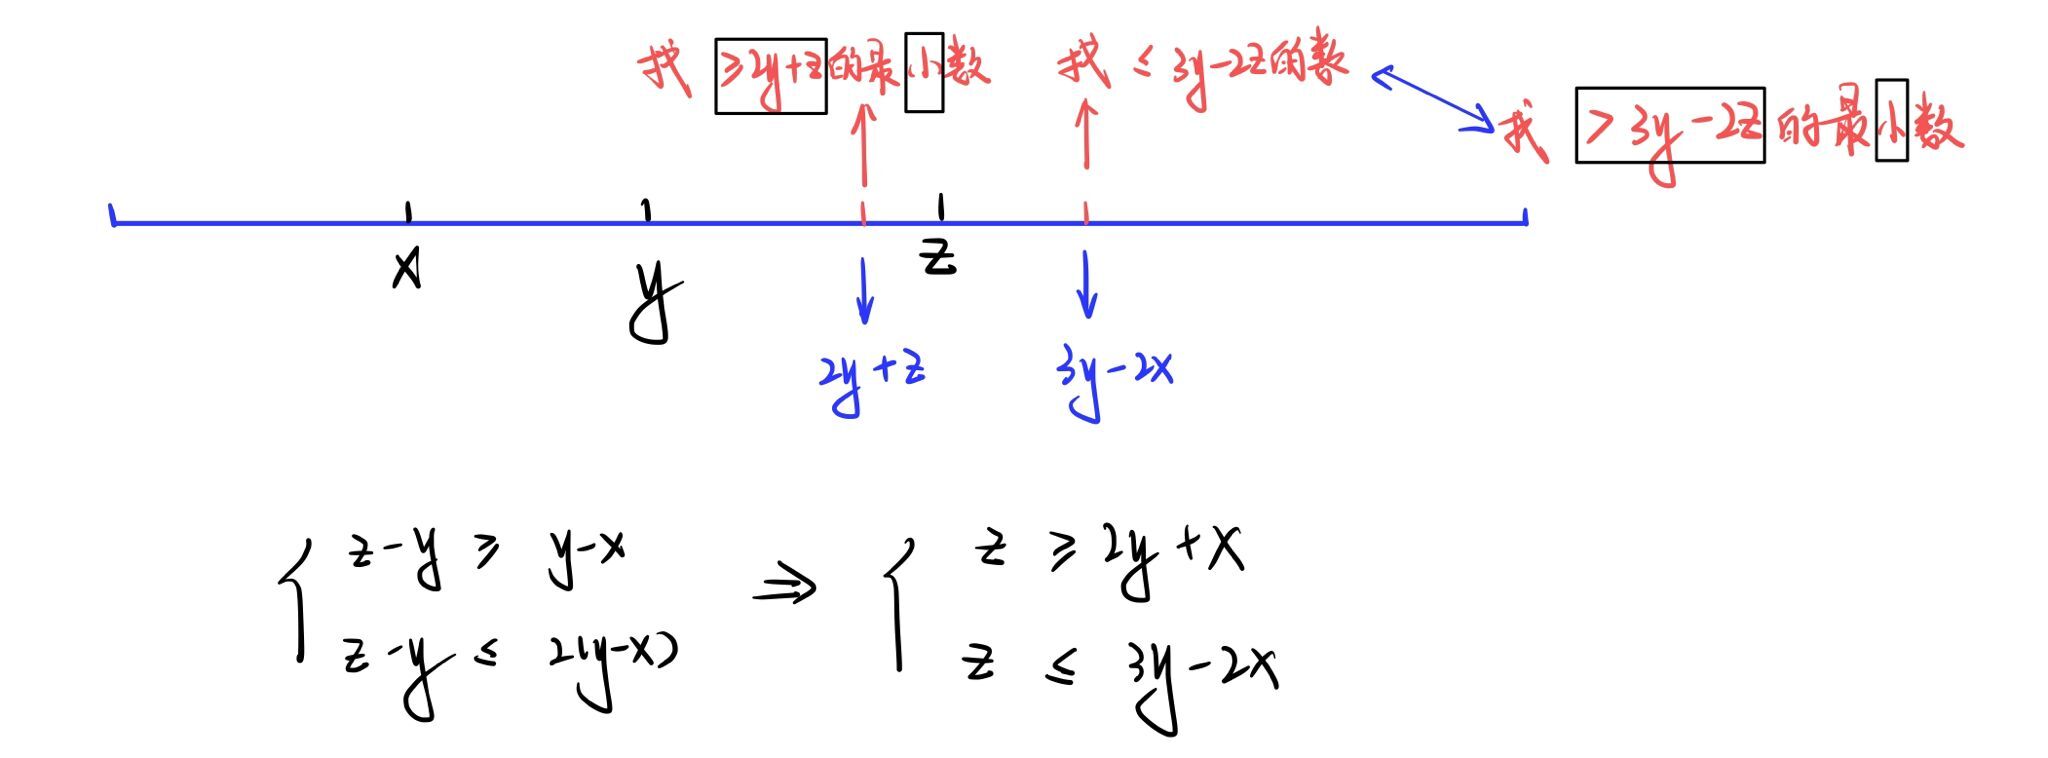 找 ≥2y+z的最小数
找 ≤3y-2z的数
找 >3y-2z的最小数
x
y
z
2y+z
3y-2x
z-y ≥ y-x
z-y ≤ 2(y-x)
⇒
z ≥ 2y+x
z ≤ 3y-2x